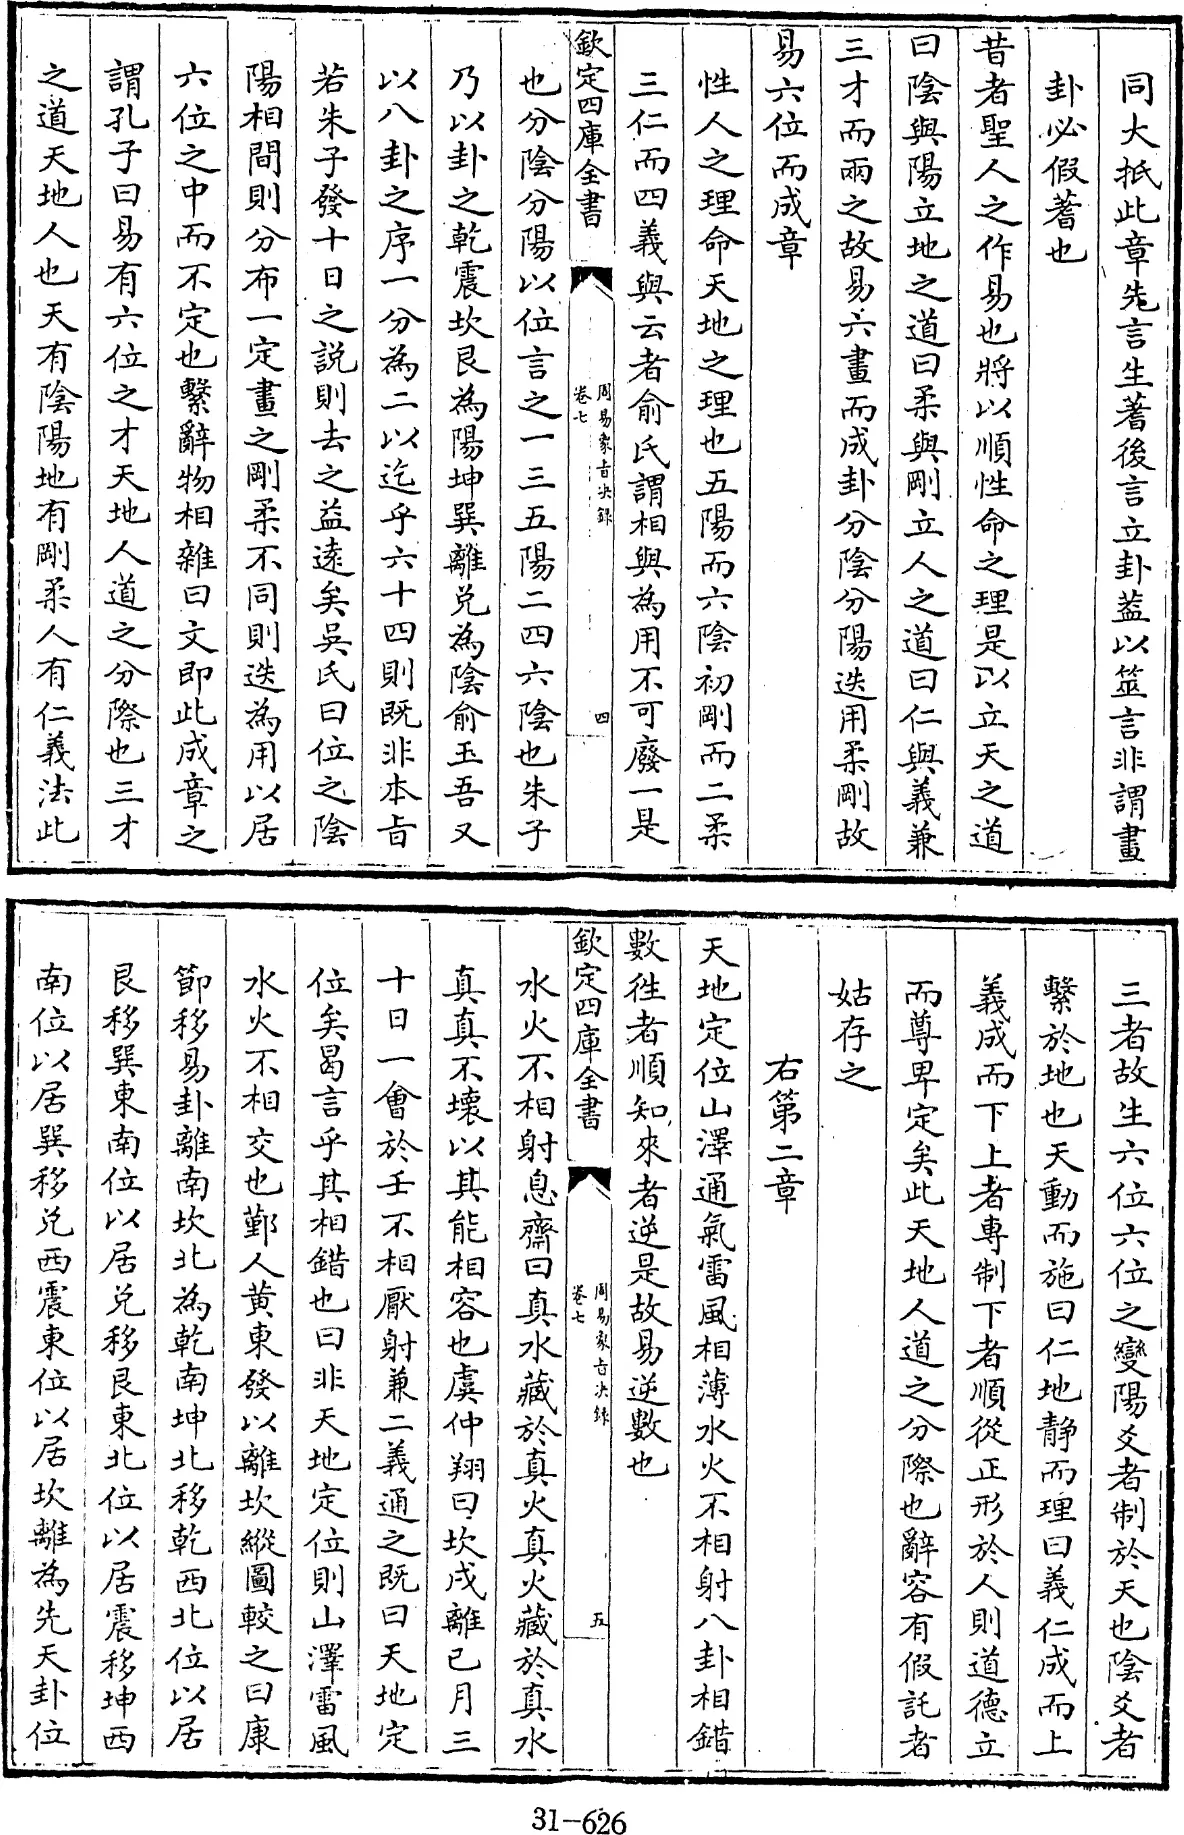 同大抵此章先言生蓍後言立卦葢以筮言非謂畫
卦必假蓍也
昔者聖人之作易也將以順性命之理是以立天之道
曰陰與陽立地之道曰柔與剛立人之道曰仁與義兼
三才而兩之故易六畫而成卦分陰分陽迭用柔剛故
易六位而成章
性人之理命天地之理也五陽而六陰初剛而二柔
三仁而四義與云者俞氏謂相與為用不可廢一是
欽定四庫全書
周易象旨决録
卷七
四
也分陰分陽以位言之一三五陽二四六陰也朱子
乃以卦之乾震坎艮為陽坤巽離兌為陰俞玉吾又
以八卦之序一分為二以迄乎六十四則既非本旨
若朱子發十日之説則去之益遠矣吳氏曰位之陰
陽相間則分布一定畫之剛柔不同則迭為用以居
六位之中而不定也繫辭物相雜曰文即此成章之
謂孔子曰易有六位之才天地人道之分際也三才
之道天地人也天有陰陽地有剛柔人有仁義法此
三者故生六位六位之變陽爻者制於天也陰爻者
繫於地也天動而施曰仁地静而理曰義仁成而上
義成而下上者專制下者順從正形於人則道德立
而尊卑定矣此天地人道之分際也辭容有假託者
姑存之
右第二章
天地定位山澤通氣雷風相薄水火不相射八卦相錯
數徃者順知來者逆是故易逆數也
欽定四庫全書
周易象旨决録
卷七
五
水火不相射息齋曰真水藏於真火真火藏於真水
真真不壞以其能相容也虞仲翔曰坎戌離已月三
十日一會於壬不相厭射兼二義通之既曰天地定
位矣曷言乎其相錯也曰非天地定位則山澤雷風
水火不相交也鄞人黄東發以離坎縱圖較之曰康
節移易卦離南坎北為乾南坤北移乾西北位以居
艮移巽東南位以居兌移艮東北位以居震移坤西
南位以居巽移兌西震東位以居坎離為先天卦位
31-626